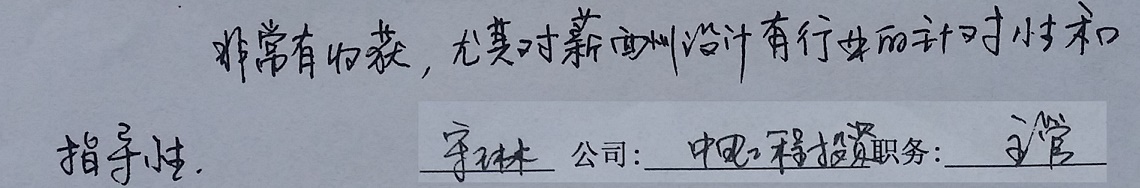 非常有收获，尤其对薪酬设计有行业的针对性和
指导性.
公司： 中电工程投资 职务： 主管